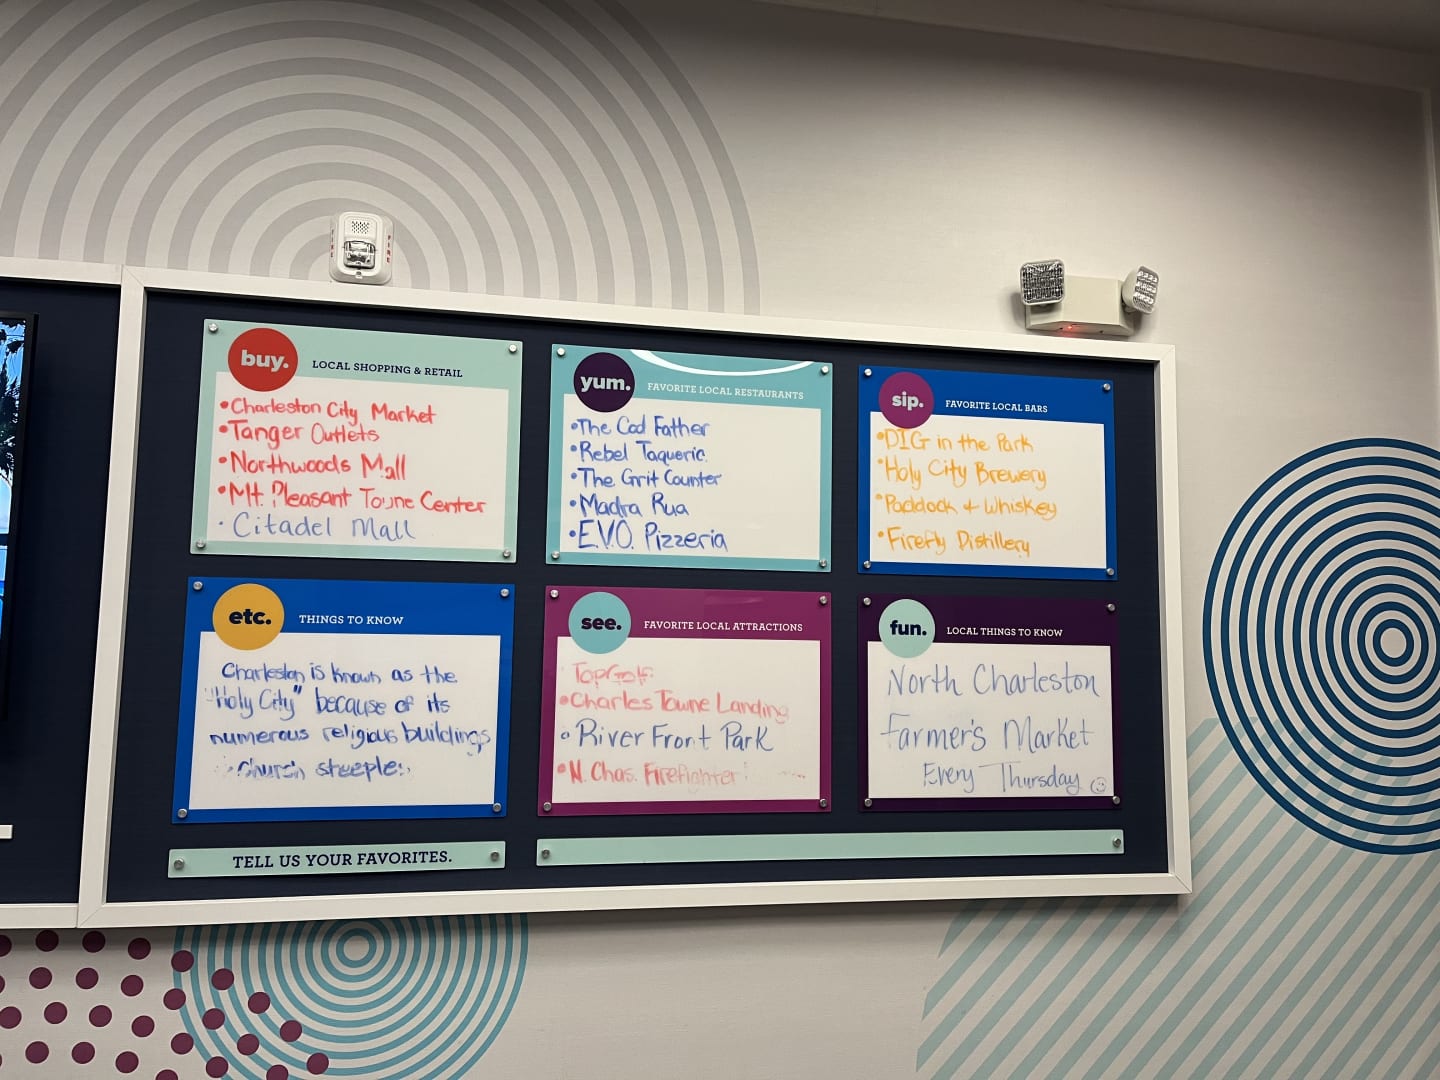 FIRE
FIRE
buy.
LOCAL SHOPPING & RETAIL
•Charleston City Market
•Tanger Outlets
•Northwoods Mall
•Mt. Pleasant Towne Center
•Citadel Mall
yum.
FAVORITE LOCAL RESTAURANTS
•The Cod Father
•Rebel Taqueria
•The Grit Counter
•Madra Rua
•E.V.O. Pizzeria
sip.
FAVORITE LOCAL BARS
•DIG in the Park
•Holy City Brewery
•Paddock & Whiskey
•Firefly Distillery
etc.
THINGS TO KNOW
Charleston is known as the
"Holy City" because of its
numerous religious buildings
church steeples
see.
FAVORITE LOCAL ATTRACTIONS
TopGolf
•Charles Towne Landing
•River Front Park
•N. Chas. Firefighter
fun.
LOCAL THINGS TO KNOW
North Charleston
Farmer's Market
Every Thursday ☺
TELL US YOUR FAVORITES.